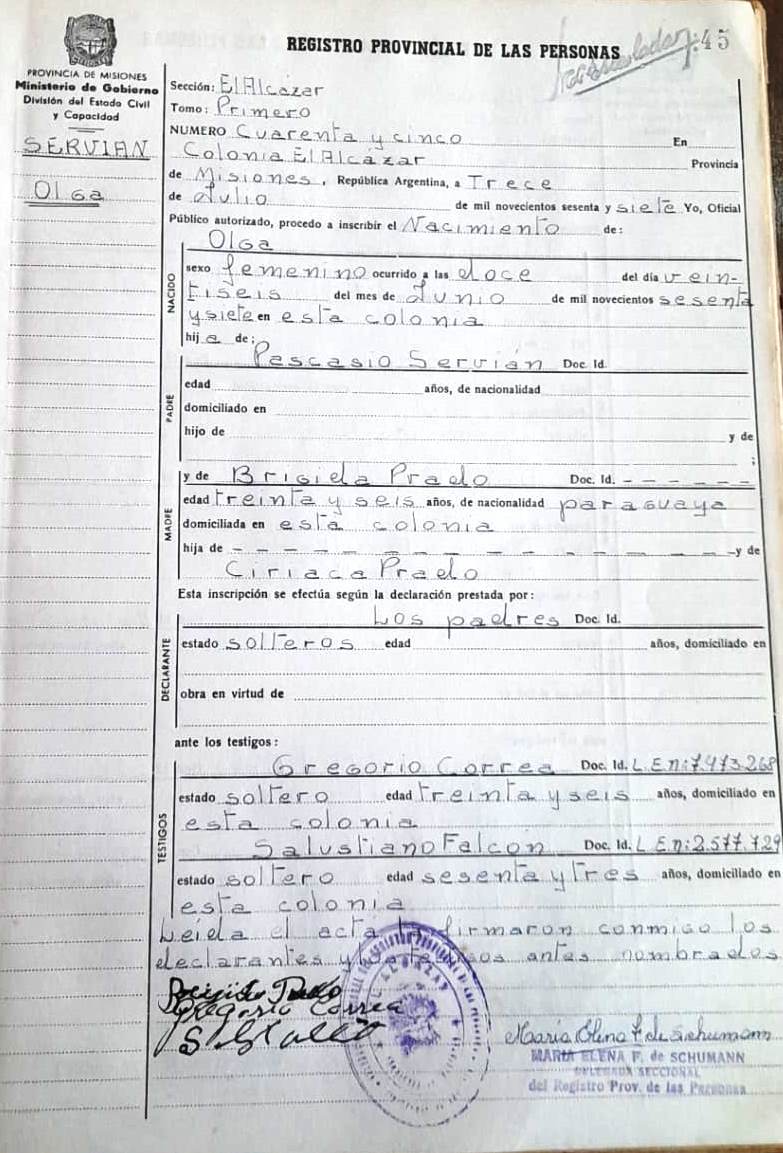 REGISTRO PROVINCIAL DE LAS PERSONAS
45
PROVINCIA DE MISIONES
Ministerio de Gobierno
División del Estado Civil
y Capacidad
SERVIAN
Olga
Sección: El Alcázar
Tomo: Primero
NUMERO Cuarenta y cinco En
Colonia El Alcázar Provincia
de Misiones, República Argentina, a Trece
de Julio de mil novecientos sesenta y siete Yo, Oficial
Público autorizado, procedo a inscribir el Nacimiento de:
NACIDO
Olga
sexo femenino ocurrido a las doce del día vein-
tiseis del mes de Junio de mil novecientos sesenta
y siete en esta colonia
hija de:
PADRE
Pescasio Servián Doc. Id.
edad años, de nacionalidad
domiciliado en
hijo de y de
;
MADRE
y de Brigida Prado Doc. Id. - - - - - -
edad treinta y seis años, de nacionalidad paraguaya
domiciliada en esta colonia
hija de - - - - - - - - - - - - - - y de
Ciriaca Prado
Esta inscripción se efectúa según la declaración prestada por:
DECLARANTE
Los padres Doc. Id.
estado solteros edad años, domiciliado en
obra en virtud de
ante los testigos:
TESTIGOS
Gregorio Correa Doc. Id. L.E.n:7.473.268
estado soltero edad treinta y seis años, domiciliado en
esta colonia
Salustiano Falcon Doc. Id. L.E.n:2.577.729
estado soltero edad sesenta y tres años, domiciliado en
esta colonia
Leida el acta la firmaron conmigo los
declarantes y testigos antes nombrados
Gregorio Correa
María Elena F. de Schumann
MARIA ELENA F. de SCHUMANN
DELEGADA SECCIONAL
del Registro Prov. de las Personas